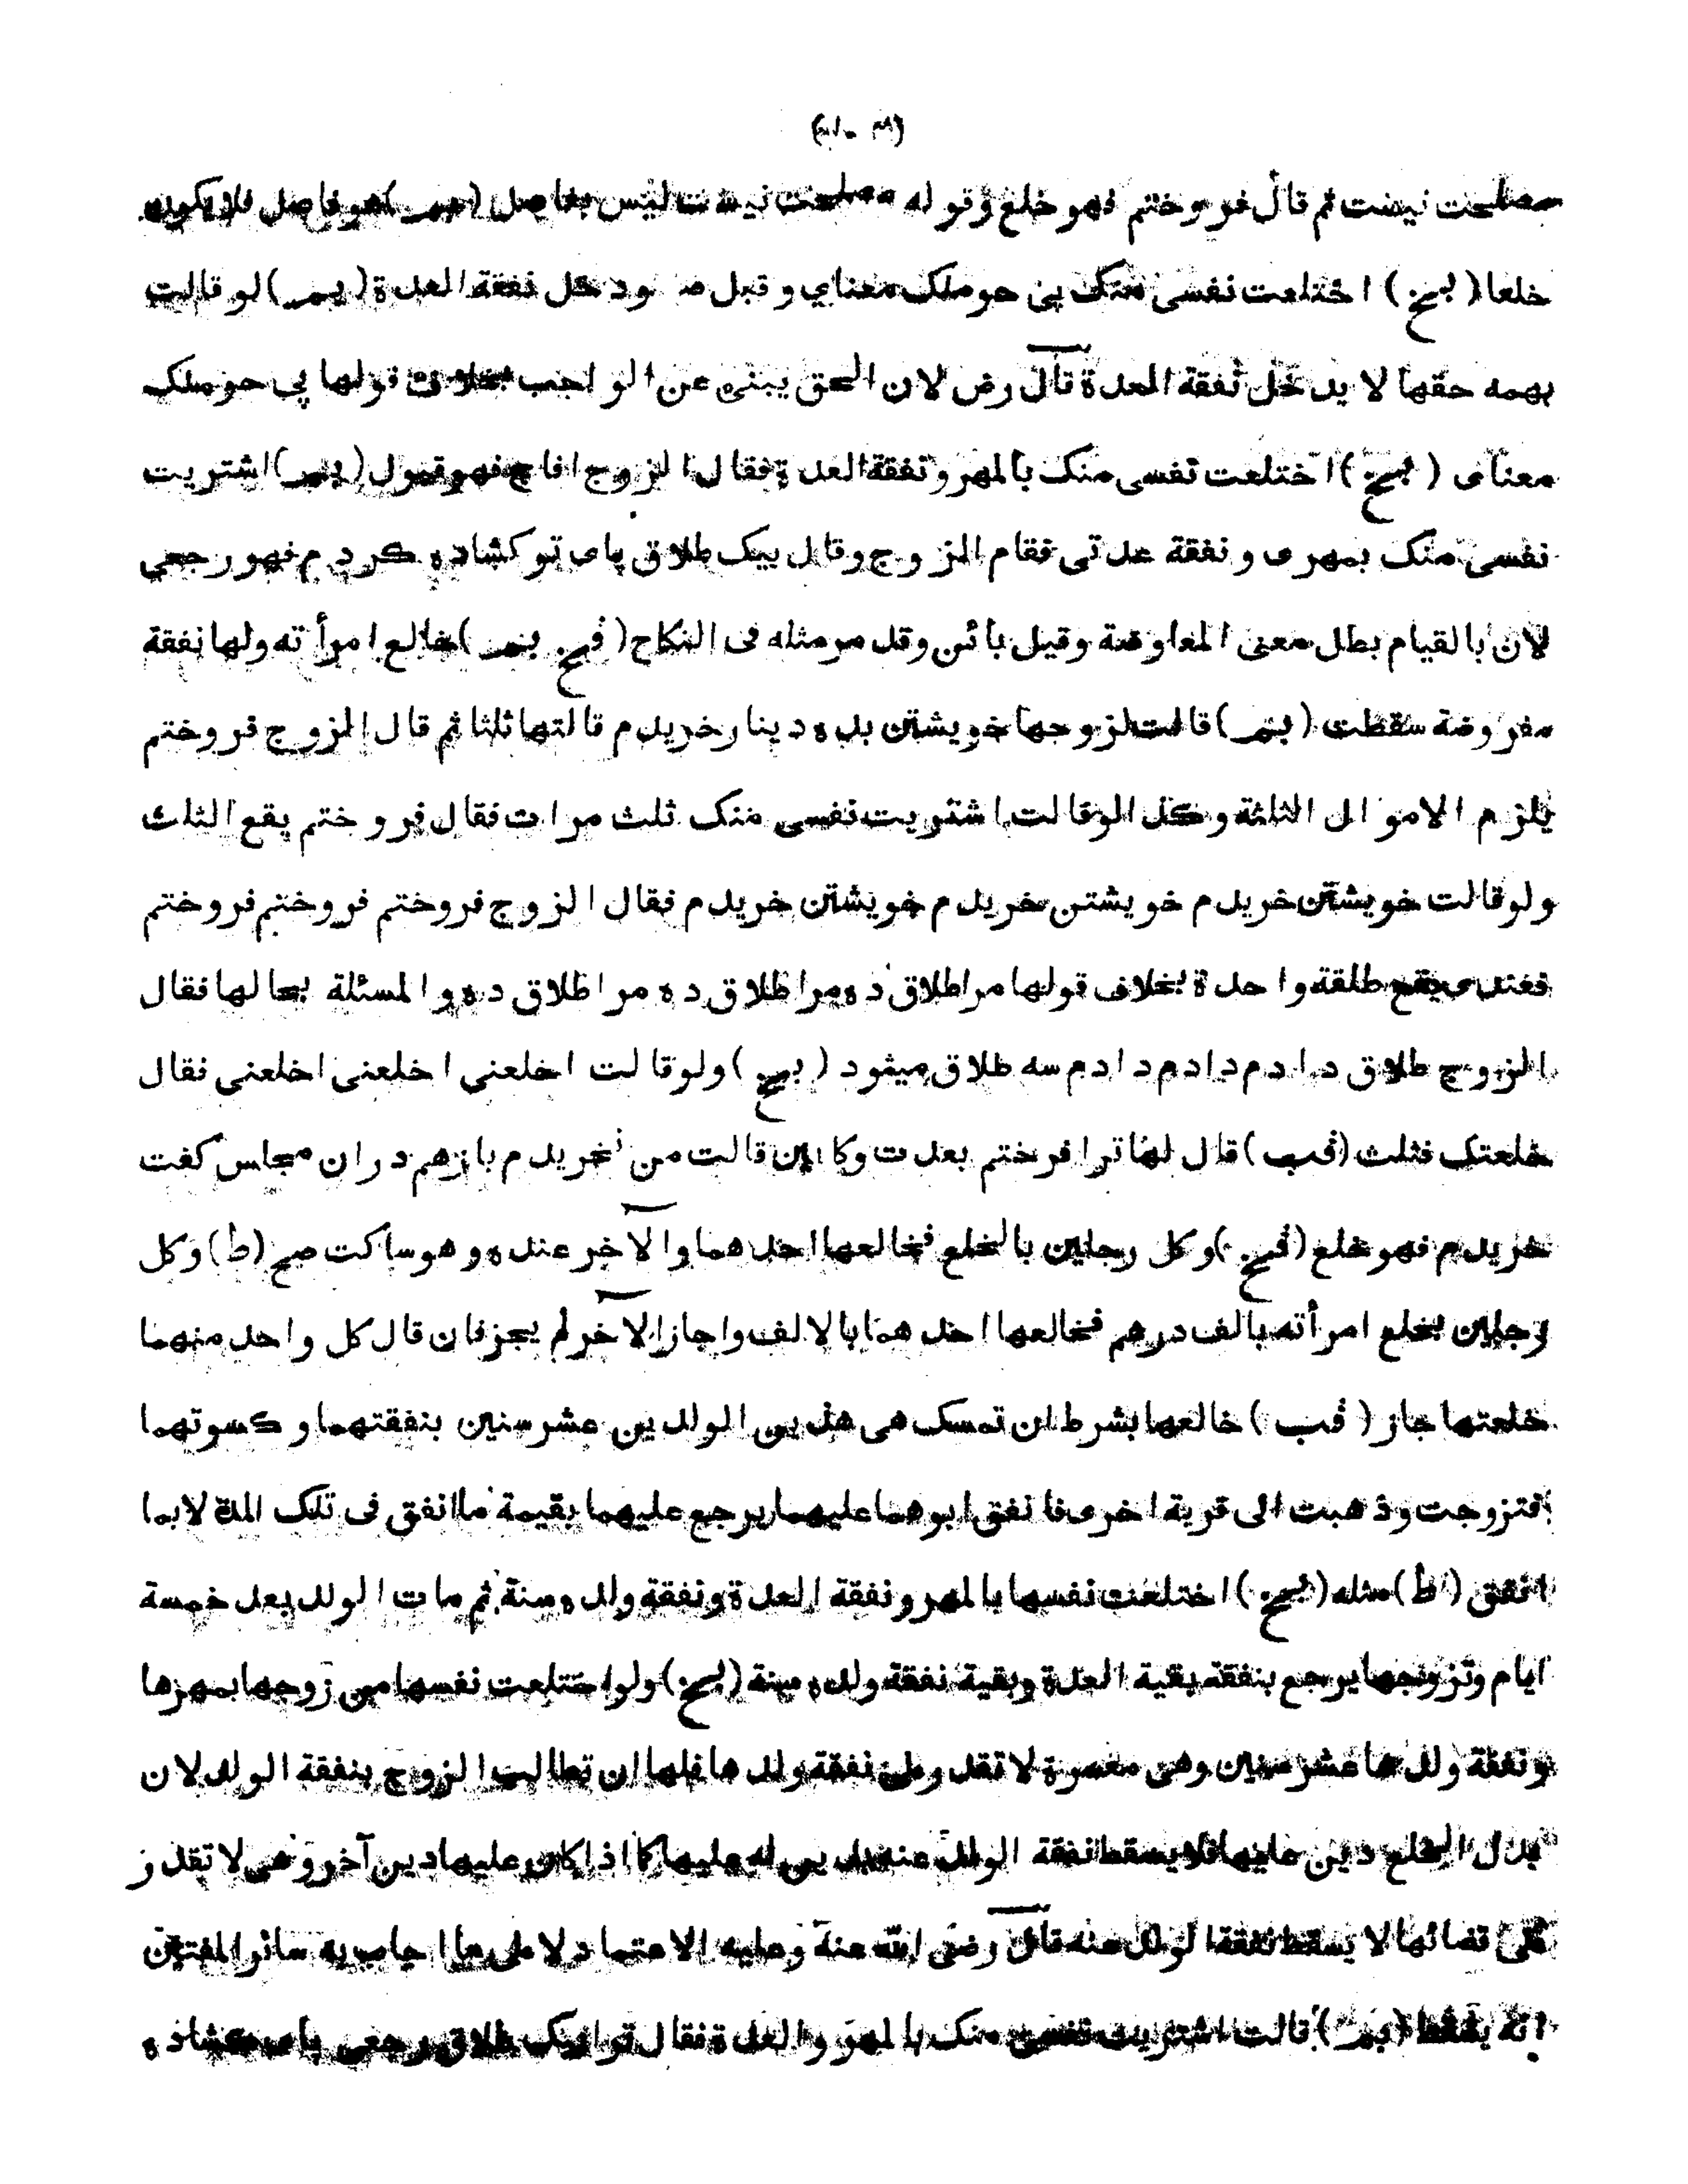 مصلحت نيست ثم قال فروختم فهو خلع وقوله مصلحت نيست ليس بفاصل (بمر) هو فاصل فلا يكون
خلعا (بخ) اختلعت نفسى منك بى حوملك معناى وقبل دخل نفقة العدة (بمر) لو قالت
بهمه حقها لا يدخل نفقة العدة قال رض لان الحق ينبئ عن الواجب بخلاف قولها پي حوملك
معناى (بخ) اختلعت نفسى منك بالمهر ونفقة العدة فقال الزوج افاج فهو قبول (بمر) اشتريت
نفسى منك بمهرى ونفقة عدتى فقام الزوج وقال بيك طلاق پاى تو كشاده كردم فهو رجعي
لان بالقيام بطل معنى المعاوضة وقيل بائن وقد مر مثله فى النكاح (فخ بمر) خالع امرأته ولها نفقة
مفروضة سقطت (بمر) قالت لزوجها خويشتن بده دينار خريدم قالتها ثلثا ثم قال الزوج فروختم
يلزم الاموال الثلثة وكذا لو قالت اشتريت نفسى منك ثلث مرات فقال فروختم يقع الثلث
ولو قالت خويشتن خريدم خويشتن خريدم خويشتن خريدم فقال الزوج فروختم فروختم فروختم
فعندى يقع طلقة واحدة بخلاف قولها مرا طلاق ده مرا طلاق ده مرا طلاق ده والمسئلة بحالها فقال
الزوج طلاق دادم دادم دادم سه طلاق ميشود (بخ) ولو قالت اخلعني اخلعنى اخلعنى فقال
خلعتك فثلث (فب) قال لها ترا فرختم بعدت وكابين قالت من نخريدم باز هم دران مجلس كفت
خريدم فهو خلع (فخ) وكل رجلين بالخلع فخالعها احدهما والآخر عنده وهو ساكت صح (ط) وكل
رجلين بخلع امرأته بالف درهم فخالعها احدهما بالالف واجاز الآخر لم يجز فان قال كل واحد منهما
خلعتها جاز (فب) خالعها بشرط ان تمسك هى هذين الولدين عشر سنين بنفقتهما وكسوتهما
فتزوجت وذهبت الى قرية اخرى فانفق ابوهما عليهما يرجع عليهما بقيمة ما انفق فى تلك المدة لا بما
انفق (ط) مثله (بخ) اختلعت نفسها بالمهر ونفقة العدة ونفقة ولده سنة ثم مات الولد بعد خمسة
ايام وتزوجها يرجع بنفقة بقية العدة وبقية نفقة ولده سنة (بخ) ولو اختلعت نفسها من زوجها بمهرها
ونفقة ولدها عشر سنين وهى معسرة لا تقدر على نفقة ولدها فلها ان تطالب الزوج بنفقة الولد لان
بدل الخلع دين عليها فلا يسقط نفقة الولد عنه بدين له عليها كما اذا كان عليها دين آخر وهى لا تقدر
على قضائها لا يسقط نفقة الولد عنه قال رضى الله عنه وعليه الاعتماد لا على ما اجاب به سائر المفتين
انه يسقط (بمر) قالت اشتريت نفسى منك بالمهر والعدة فقال ترا بيك طلاق رجعى پاى كشاده